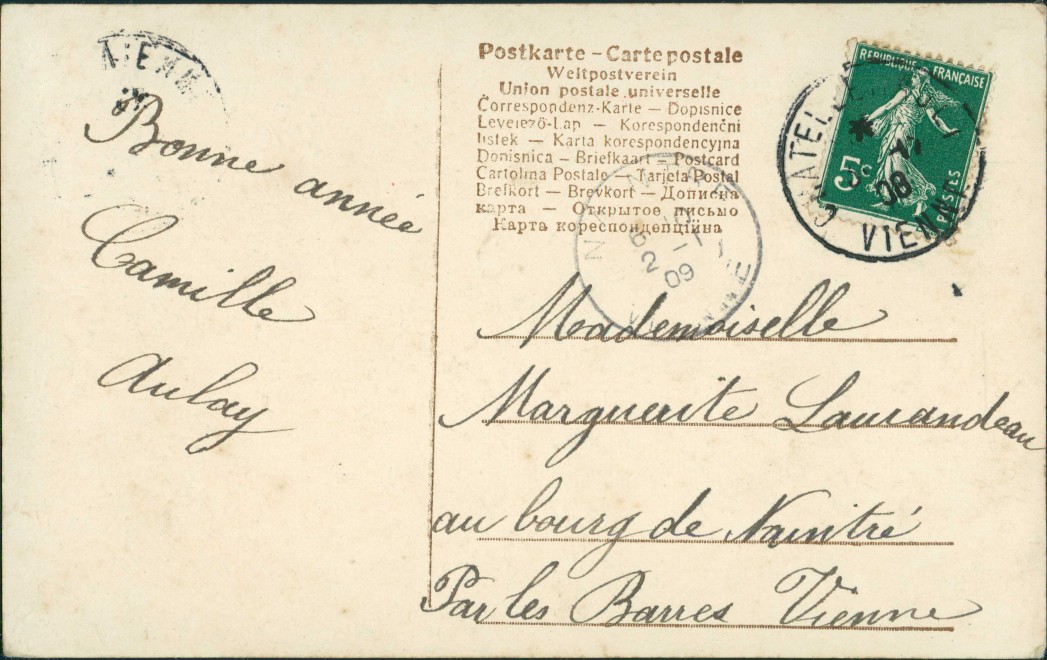 Postkarte – Carte postale
Weltpostverein
Union postale universelle
Correspondenz-Karte — Dopisnice
Levelező-Lap — Korespondenční
lístek — Karta korespondencyjna
Dopisnica — Briefkaart — Postcard
Cartolina Postale — Tarjeta Postal
Brefkort — Brevkort — Дописна
карта — Открытое письмо
Карта кореспонденційна
REPUBLIQUE FRANÇAISE
5c
VIENNE
08
09
Bonne année
Camille
Aulay
Mademoiselle
Marguerite Laurandeau
au bourg de Naintré
Par les Barres Vienne